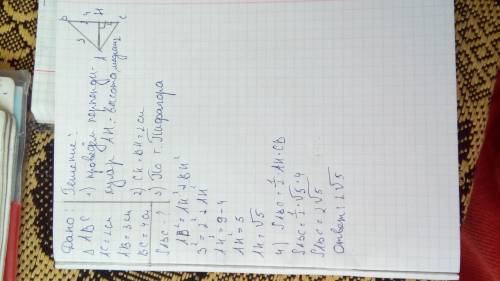 Дано:
Δ ABC
AC = 2см
AB = 3см
BC = 4см
SABC - ?
Решение:
1) проведём перпенди-
куляр AH - высота, медиана
2) CH = BH = 2см
3) По т. Пифагора
AB² = AH² + BH²
3² = 2² + AH²
AH² = 9 - 4
AH² = 5
AH = √5
4) SABC = 1/2 · AH · CB
SABC = 1/2 · √5 · 4
SABC = 2√5
Ответ: 2√5
B
3
4
H
A
C